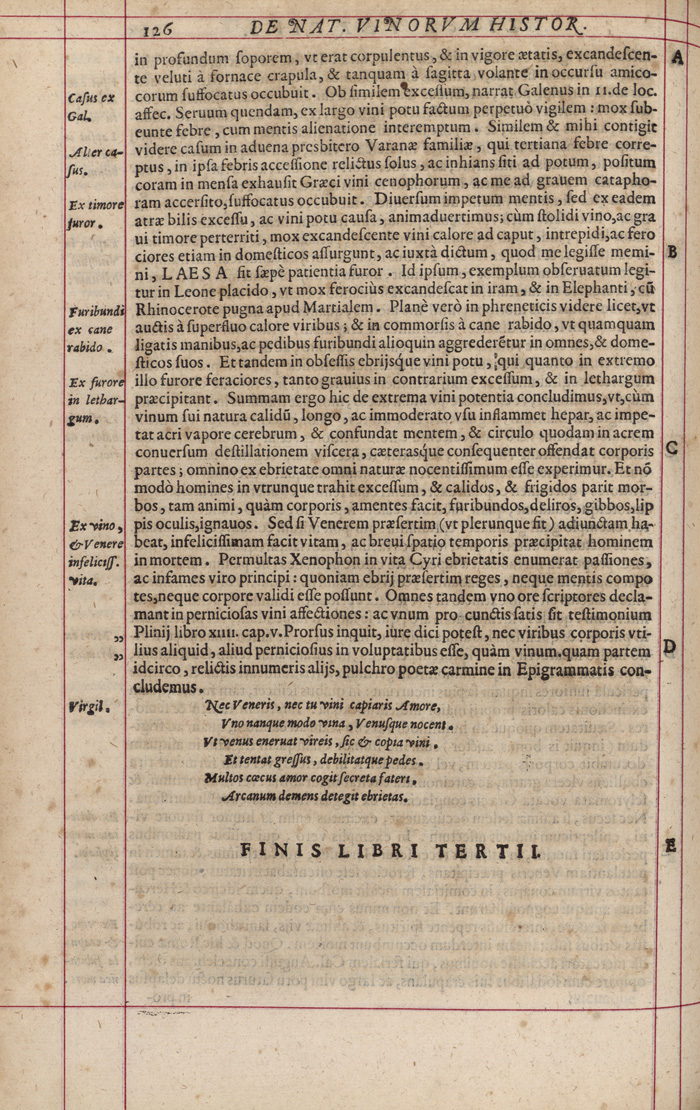 126 DE NAT. VINORVM HISTOR.
in profundum ſoporem, vt erat corpulentus, & in vigore ætatis, excandeſcen-
te veluti à fornace crapula, & tanquam à ſagitta volante in occurſu amico-
corum ſuffocatus occubuit. Ob ſimilem exceſſum, narrat Galenus in 11.de loc.
affec. Seruum quendam, ex largo vini potu factum perpetuò vigilem: mox ſub-
eunte febre, cum mentis alienatione interemptum. Similem & mihi contigit
videre caſum in aduena presbitero Varanæ familiæ, qui tertiana febre corre-
ptus, in ipſa febris acceſſione relictus ſolus, ac inhians ſiti ad potum, poſitum
coram in menſa exhauſit Græci vini cenophorum, ac me ad grauem catapho-
ram accerſito, ſuffocatus occubuit. Diuerſum impetum mentis, ſed ex eadem
atræ bilis exceſſu, ac vini potu cauſa, animaduertimus; cùm ſtolidi vino, ac gra
ui timore perterriti, mox excandeſcente vini calore ad caput, intrepidi, ac fero
ciores etiam in domeſticos aſſurgunt, ac iuxtà dictum, quod me legiſſe memi-
ni, LAESA ſit ſæpè patientia furor. Id ipſum, exemplum obſeruatum legi-
tur in Leone placido, vt mox ferociùs excandeſcat in iram, & in Elephanti, cū
Rhinocerote pugna apud Martialem. Planè verò in phreneticis videre licet, vt
auctis à ſuperfluo calore viribus; & in commorſis à cane rabido, vt quamquam
ligatis manibus, ac pedibus furibundi alioquin aggrederētur in omnes, & dome-
ſticos ſuos. Et tandem in obſeſſis ebrijsq́ue vini potu, qui quanto in extremo
illo furore feraciores, tanto grauius in contrarium exceſſum, & in lethargum
præcipitant. Summam ergo hic de extrema vini potentia concludimus, vt, cùm
vinum ſui natura calidū, longo, ac immoderato vſu inflammet hepar, ac impe-
tat acri vapore cerebrum, & confundat mentem, & circulo quodam in acrem
conuerſum deſtillationem viſcera, cæterasq́ue conſequenter offendat corporis
partes; omnino ex ebrietate omni naturæ nocentiſſimum eſſe experimur. Et nō
modò homines in vtrunque trahit exceſſum, & calidos, & frigidos parit mor-
bos, tam animi, quàm corporis, amentes facit, furibundos, deliros, gibbos, lip
pis oculis, ignauos. Sed ſi Venerem præſertim (vt plerunque fit) adiunctam ha-
beat, infeliciſſimam facit vitam, ac breui ſpatio temporis præcipitat hominem
in mortem. Permultas Xenophon in vita Cyri ebrietatis enumerat paſſiones,
ac infames viro principi: quoniam ebrij præſertim reges, neque mentis compo
tes, neque corpore validi eſſe poſſunt. Omnes tandem vno ore ſcriptores decla-
mant in pernicioſas vini affectiones: ac vnum pro cunctis ſatis ſit teſtimonium
Plinij libro xiiii. cap.v. Prorſus inquit, iure dici poteſt, nec viribus corporis vti-
lius aliquid, aliud pernicioſius in voluptatibus eſſe, quàm vinum. quam partem
idcirco, relictis innumeris alijs, pulchro poetæ carmine in Epigrammatis con-
cludemus.
Nec Veneris, nec tu vini capiaris Amore,
Vno nanque modo vina, Venuſque nocent.
Vt venus eneruat vireis, ſic & copia vini.
Et tentat greſſus, debilitatque pedes.
Multos cœcus amor cogit ſecreta fateri.
Arcanum demens detegit ebrietas.
FINIS LIBRI TERTII.
Caſus ex
Gal.
Alter ca-
ſus.
Ex timore
furor.
Furibundi
ex cane
rabido.
Ex furore
in lethar-
gum.
Ex vino,
& Venere
infeliciſſ.
vita.
„
„
Virgil.
A
B
C
D
E